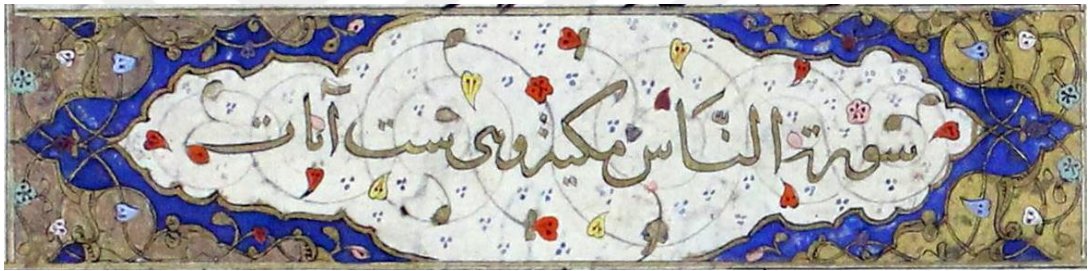 سورة الناس مكية وهى ست آيات